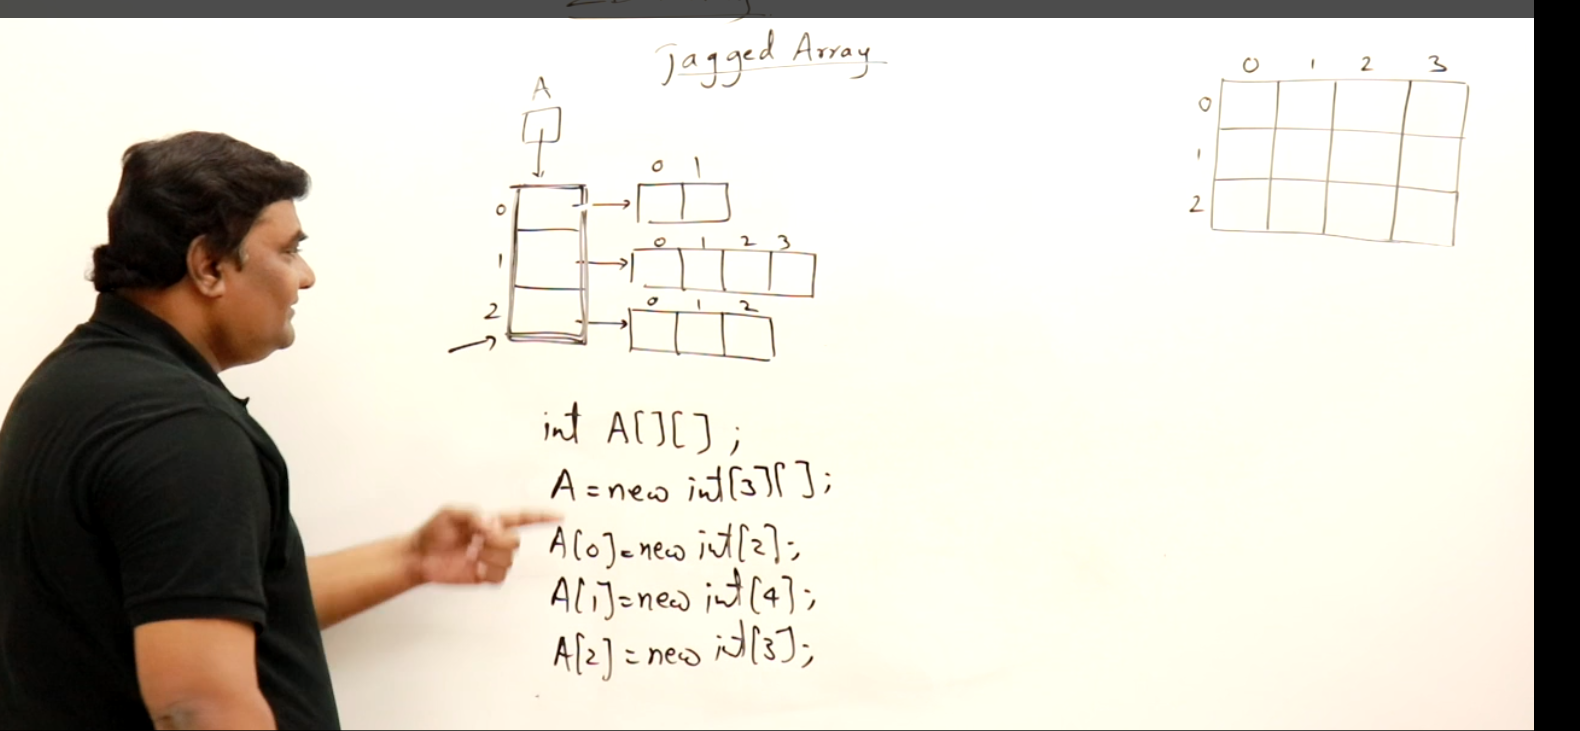 Jagged Array
A
0 1
0
0 1 2 3
1
0 1 2
2
int A[][];
A=new int[3][];
A[0]=new int[2];
A[1]=new int[4];
A[2]=new int[3];
0 1 2 3
0
1
2